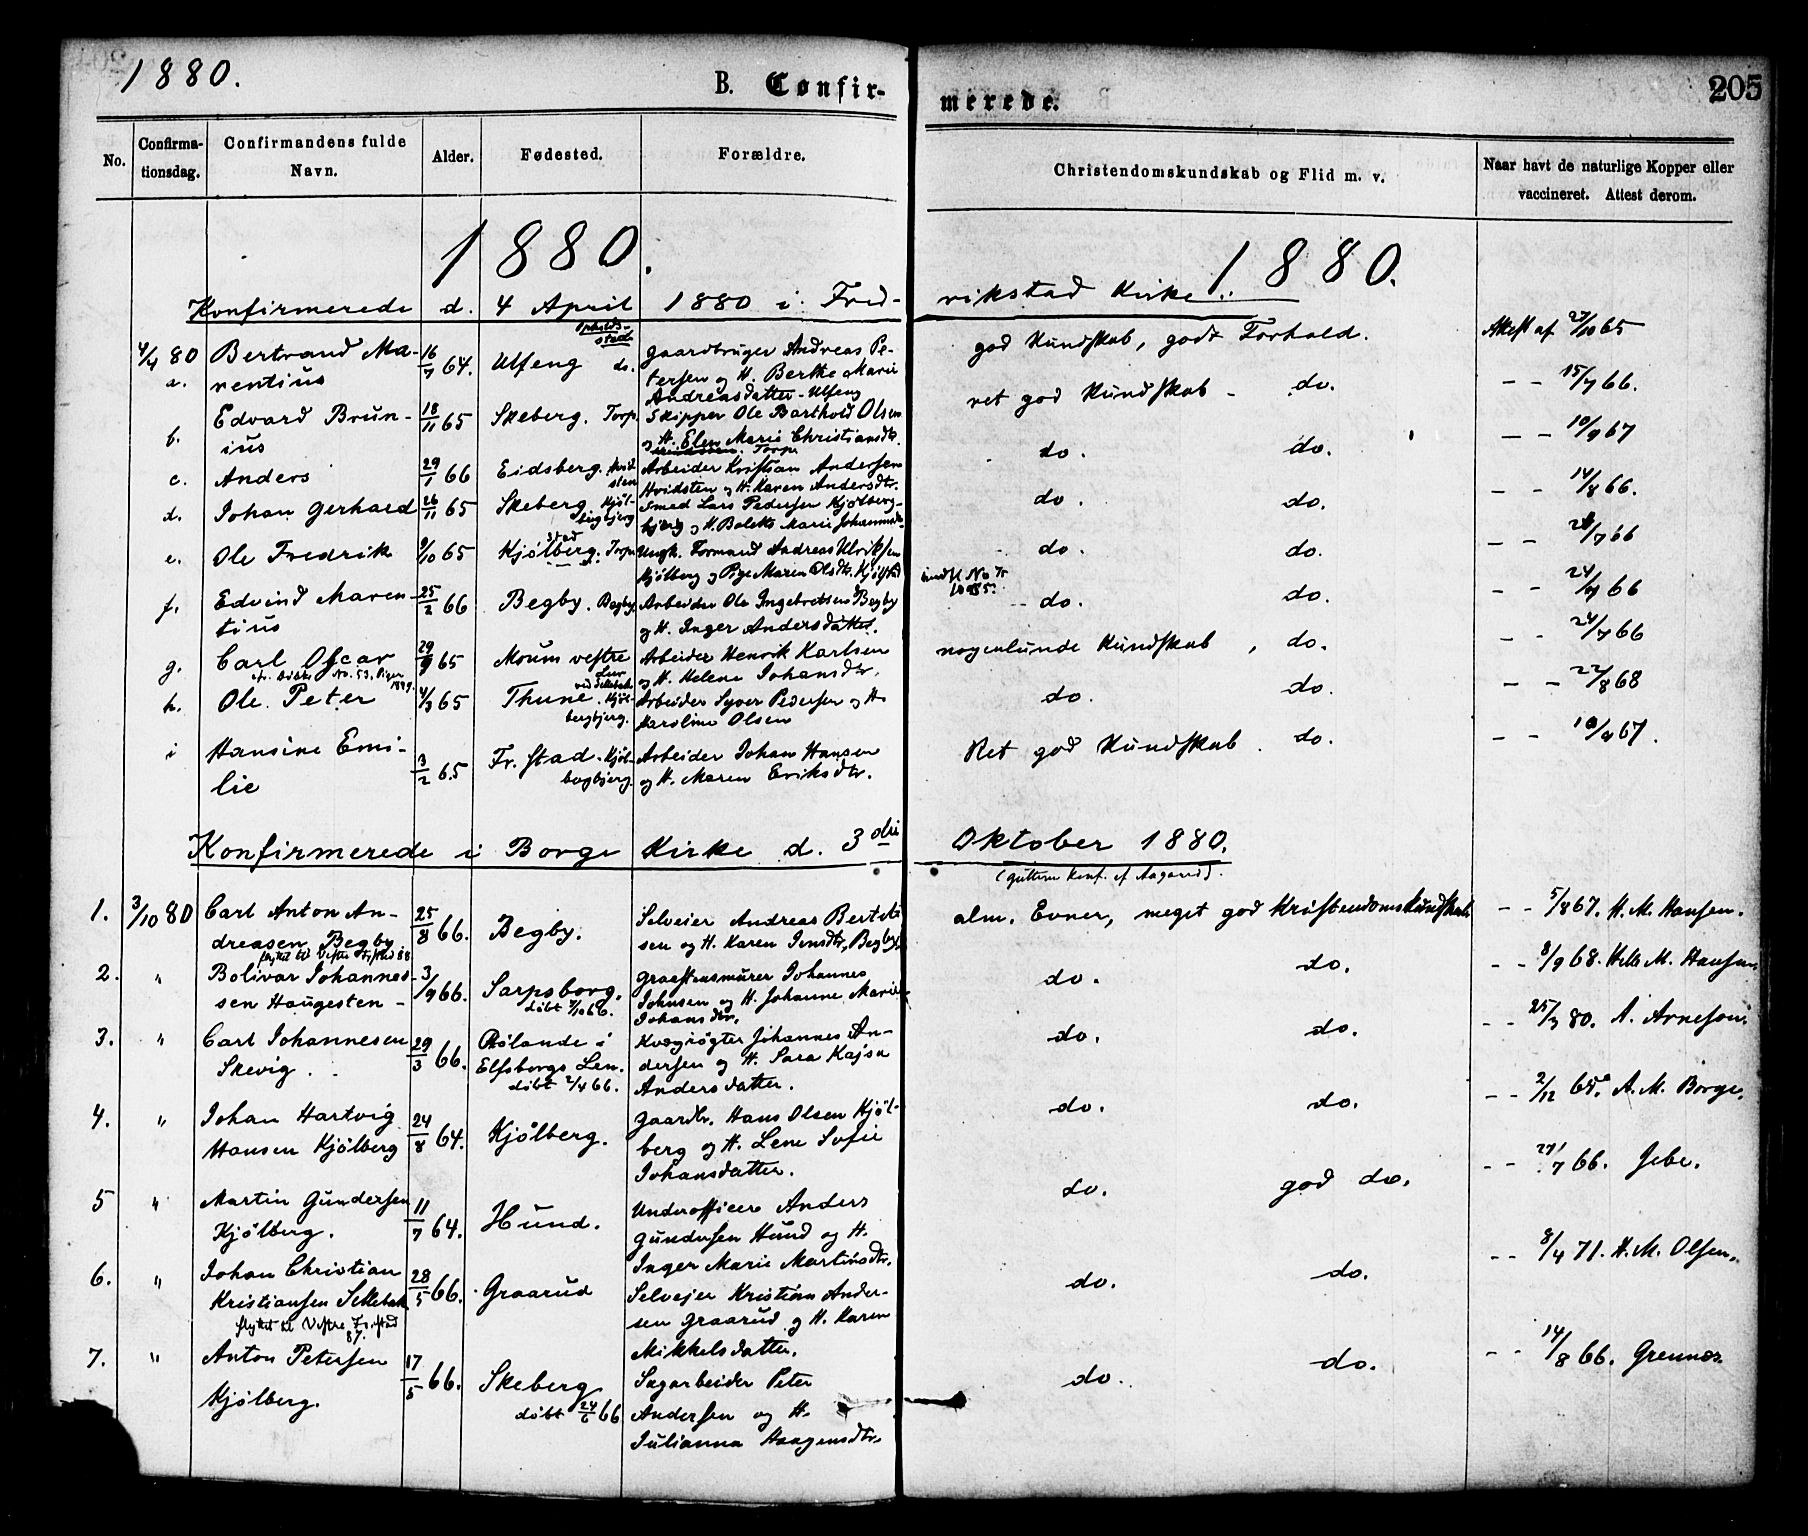 1880.
B. Confir-
merede.
205
No.
Confirma-
tionsdag.
Confirmandens fulde
Navn.
Alder.
Fødested.
Forældre.
Christendomskundskab og Flid m. v.
Naar havt de naturlige Kopper eller
vaccineret. Attest derom.
1880.
1880.
Konfirmerede d. 4 April 1880 i Fred-
rikstad Kirke:
4/4 80 a. Bertrand Ma-
rentius
16/7 64.
Ulfeng do.
Opholds-
sted
Gaardbruger Andreas Pe-
tersen og H. Berthe Marie
Andreasdatter - Ulfeng
god Kundskab, godt Forhold.
Attest af 27/10 65
b. Edvard Brun-
ius
18/11 65
Skeberg. Torp
Skipper Ole Barthold Olsen
og H. Elen Marie Christiansdtr.
Torp
ret god Kundskab - do.
- - 15/7 66.
c. Anders
29/1 66
Eidsberg. Hvid
sten
Arbeider Kristian Andersen
Hvidsten og H. Karen Andersdtr.
do. do.
- - 10/9 67
d. Johan Gerhard
26/11 65
Skeberg. Kjøl-
bergbjerg
Smed Lars Pedersen Kjølberg-
bjerg og H. Bolette Marie
do. do.
- - 14/8 66.
e. Ole Fredrik
9/10 65
Kjølberg. Torp
Ungk. Formand Andreas Ulriksen
Kjølberg og Pige Maren Olsdtr.
do. do.
- - 28/7 66
f. Edvind Maren-
tius
25/2 66
Begby. Begby
Arbeider Ole Ingebretsen Begby
og H. Inger Andersdatter.
do. do.
- - 24/7 66
g. Carl Oscar
29/9 65
Moum vestre
Arbeider Henrik Karlsen
og H. Helene Johansdtr.
nogenlunde Kundskab, do.
- - 24/7 66
h. Ole Peter
4/3 65
Thune. Kjøl-
bergbjerg.
Arbeider Syver Pedersen og H.
Karoline Olsen
do. do.
- - 22/8 68
i Hansine Emi-
lie
3/2 65
Fr. stad. Kjøl-
bergbjerg.
Arbeider Johan Hansen
og H. Maren Eriksdtr.
Ret god Kundskab. do.
- - 10/9 67.
Konfirmerede i Borge Kirke d. 3die
Oktober 1880.
(Guttene konf. af Aagaard).
1. 3/10 80 Carl Anton An-
dreasen Begby
flyttet til Vestre Fr.stad 88
25/8 66.
Begby.
Selveier Andreas Bertel
sen og H. Karen Jensdtr, Begby.
alm. Evner, meget god Kristendomskundskab
- - 5/8 67. H. M. Hansen.
2. " Bolivar Johannes-
sen Haugesten -
3/9 66.
Sarpsborg.
døbt 7/10 66.
Graastensmurer Johannes
Johnsen og H. Johanne Marie
Johansdtr.
do. do.
- - 8/9 68. Helle M. Hansen
3. " Carl Johannesen
Skevig.
29/3 66.
Rølande i
Elfsborgs Len.
døbt 2/4 66.
Kvægrøgter Johannes An-
dersen og H. Sara Kajsa
Andersdatter.
do. do.
- - 25/3 80. A. Arneson.
4. " Johan Hartvig
Hansen Kjølberg
24/8 64.
Kjølberg.
Gaardbr. Hans Olsen Kjøl-
berg og H. Lene Sofie
Johansdatter.
do. do.
- - 2/12 65. A. M. Borge.
5 " Martin Gundersen
Kjølberg.
11/7 64.
Hund.
Underofficer Anders
Gundersen Hund og H.
Inger Marie Martinsdtr.
do. god do.
- - 27/7 66. Jebe.
6. " Johan Christian
Kristiansen Sellebak
flyttet til Vestre Fr.stad
87.
28/5 66.
Graarud
Selvejer Kristian Ander-
sen Graarud og H. Karen
Mikkelsdatter.
do. do.
- - 8/4 71. H. M. Olsen.
7. " Anton Petersen
Kjølberg.
17/5 66.
Skeberg
døbt 24/6 66
Sagarbeider Peter
Andersen og H.
Julianna Haagensdtr.
do. do.
- - 14/8 66. Grennes